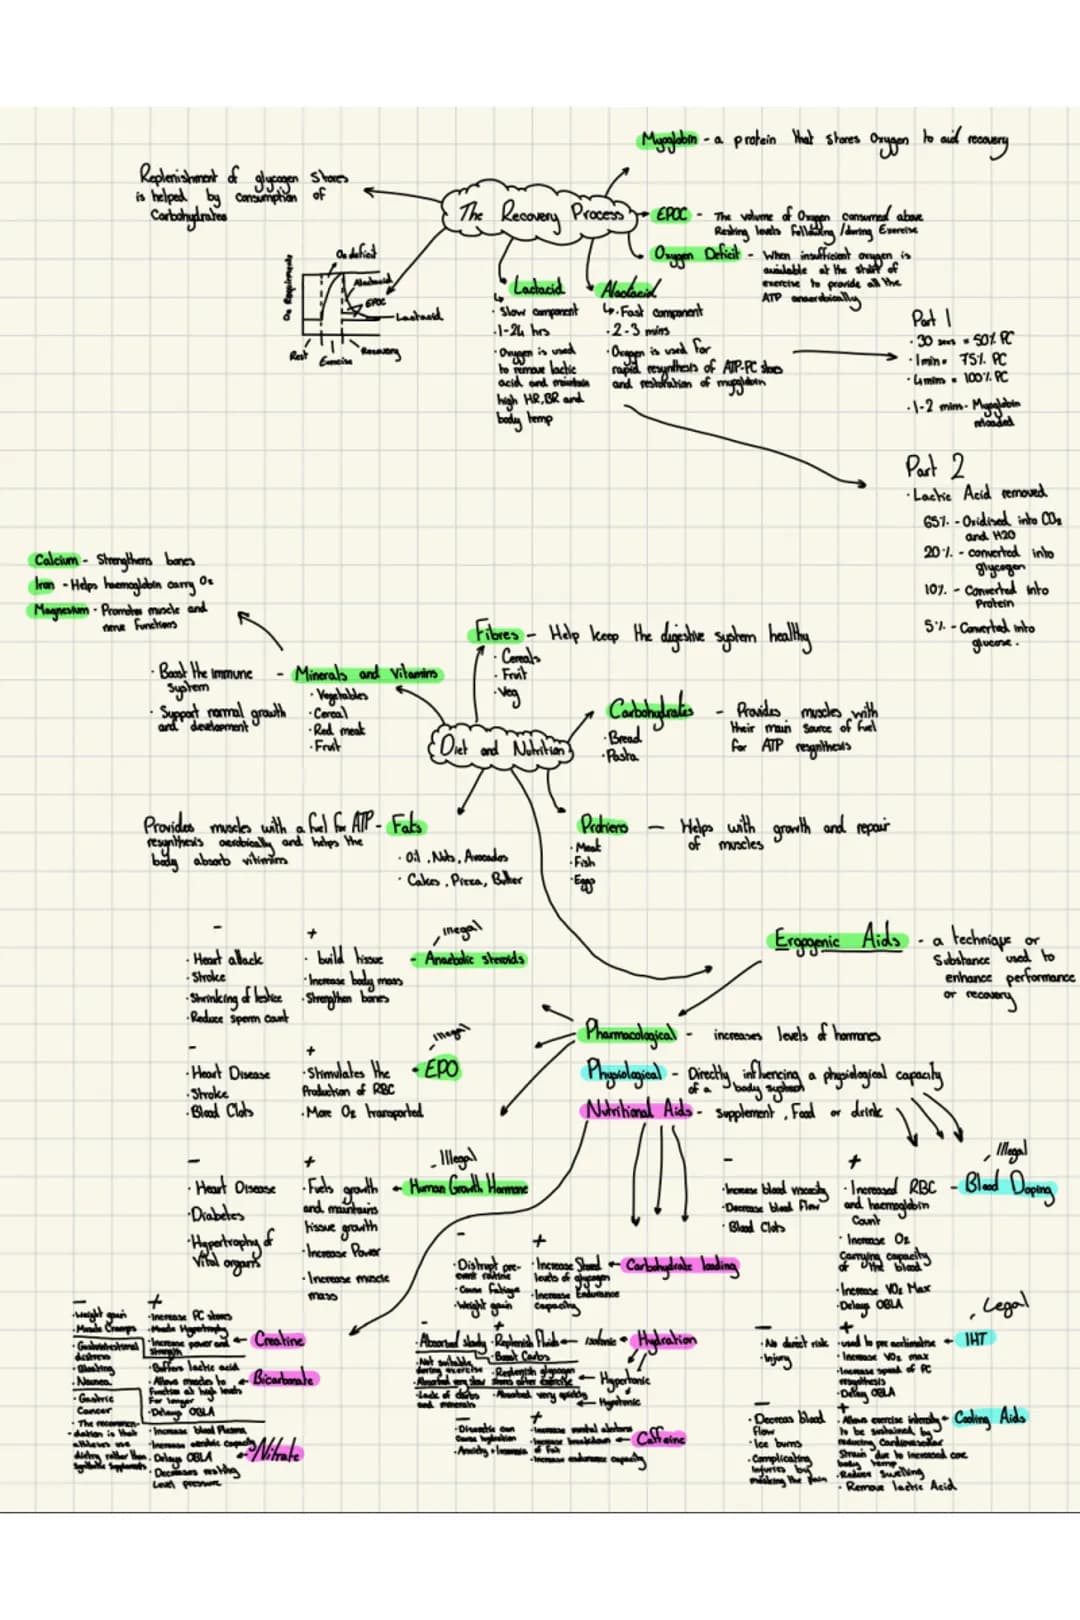 Myoglobin - a protein that stores Oxygen to aid recovery
Replenishment of glycogen stores
is helped by consumption of
Carbohydrates
The Recovery Process
EPOC - The volume of Oxygen consumed above
Resting levels following /during Exercise
Oxygen Deficit - When insufficient oxygen is
available at the start of
exercise to provide all the
ATP anaerobically
O2 deficit
Alactacid
EPOC
Lactacid
O2 Requirements
Rest
Exercise
Recovery
Lactacid
· Slow component
· 1-24 hrs
· Oxygen is used
to remove lactic
acid and maintain
high HR, BR and
body temp
Alactacid
· Fast component
· 2-3 mins
· Oxygen is used for
rapid resynthesis of ATP-PC stores
and restoration of myoglobin
Part 1
· 30 secs = 50% PC
· 1min = 75% PC
· 4mins = 100% PC
· 1-2 mins - Myoglobin
reloaded
Part 2
· Lactic Acid removed
65% - Oxidised into CO2
and H2O
20% - converted into
glycogen
10% - Converted into
Protein
5% - Converted into
glucose.
Calcium - Strengthens bones
Iron - Helps haemoglobin carry O2
Magnesium - Promotes muscle and
nerve functions
Minerals and Vitamins
· Boost the immune
system
· Support normal growth
and development
· Vegetables
· Cereal
· Red meat
· Fruit
Fibres - Help keep the digestive system healthy
· Cereals
· Fruit
· Veg
Diet and Nutrition
Carbohydrates - Provides muscles with
their main source of fuel
for ATP resynthesis
· Bread
· Pasta
Provides muscles with a fuel for ATP - Fats
resynthesis aerobically and helps the
body absorb vitimins
· Oil, Nuts, Avocados
· Cakes, Pizza, Butter
Protiens - Helps with growth and repair
of muscles
· Meat
· Fish
· Eggs
Ergogenic Aids - a technique or
Substance used to
enhance performance
or recovery
Illegal
Anaebolic steroids
-
· Heart attack
· Stroke
· Shrinking of testice
· Reduce sperm count
+
· build tissue
· Increase body mass
· Strengthen bones
Pharmacological - increases levels of hormones
Physiological - Directly influencing a physiological capacity
of a body system
Nutritional Aids - supplement, Food or drink
Illegal
EPO
-
· Heart Disease
· Stroke
· Blood Clots
+
· Stimulates the
Production of RBC
· More O2 transported
Illegal
Human Growth Hormone
-
· Heart Disease
· Diabetes
· Hypertrophy of
Vital organs
+
· Fuels growth
and maintains
tissue growth
· Increase Power
· Increase muscle
mass
Illegal
Blood Doping
-
· Increase blood viscosity
· Decrease blood flow
· Blood Clots
+
· Increased RBC
and haemoglobin
Count
· Increase O2
Carrying capacity
of the blood
· Increase VO2 Max
· Delays OBLA
Carbohydrate loading
-
· Distrupt pre-
event routine
· Cause Fatigue
· Weight gain
+
· Increase Stored
levels of glycogen
· Increase Endurance
capacity
Creatine
-
· Weight gain
· Muscle Cramps
· Gastrointestinal
distress
+
· Increase PC stores
· Muscle Hypertrophy
· Increase power and
strength
Bicarbonate
· Bloating
· Nausea
· Buffers lactic acid
· Allows muscles to
function at high levels
for longer
· Delays OBLA
Nitrate
· Gastric
Cancer
· The recommen-
dation is that
athletes use
dietry rather than
synthetic supplements
· Increase blood Plasma
· Increase aerobic capacity
· Delays OBLA
· Decreases resting
level pressure
Hydration
-
· Absorbed slowly
· Not suitable
during exercise
· Absorbed very slow
· Lack of carbs
and minerals
+
· Replenish Fluids
· Boost Carbs
Isotonic
· Replenish glycogen
stores after exercise
Hypertonic
· Absorbed very quickly
Hypotonic
Caffeine
-
· Diuretic can
cause hydration
+
· Increase mental alertness
· Increase breakdown
of Fat
· Increase endurance capacity
Legal
IHT
-
· No direct risk
· Injury
+
· used to pre acclimatise
· Increase VO2 max
· Increase speed of PC
resynthesis
· Delay OBLA
Cooling Aids
-
· Decreas blood
flow
· Ice burns
· Complicating
injuries by
masking the pain
+
· Allows exercise intensity
to be sustained by
reducing Cardiovascular
Strain due to increased core
body temp
· Reduce Swelling
· Remove lactic Acid